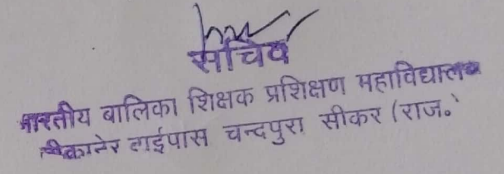 सचिव
भारतीय बालिका शिक्षक प्रशिक्षण महाविद्यालय
बीकानेर बाईपास चन्दपुरा सीकर (राज०)